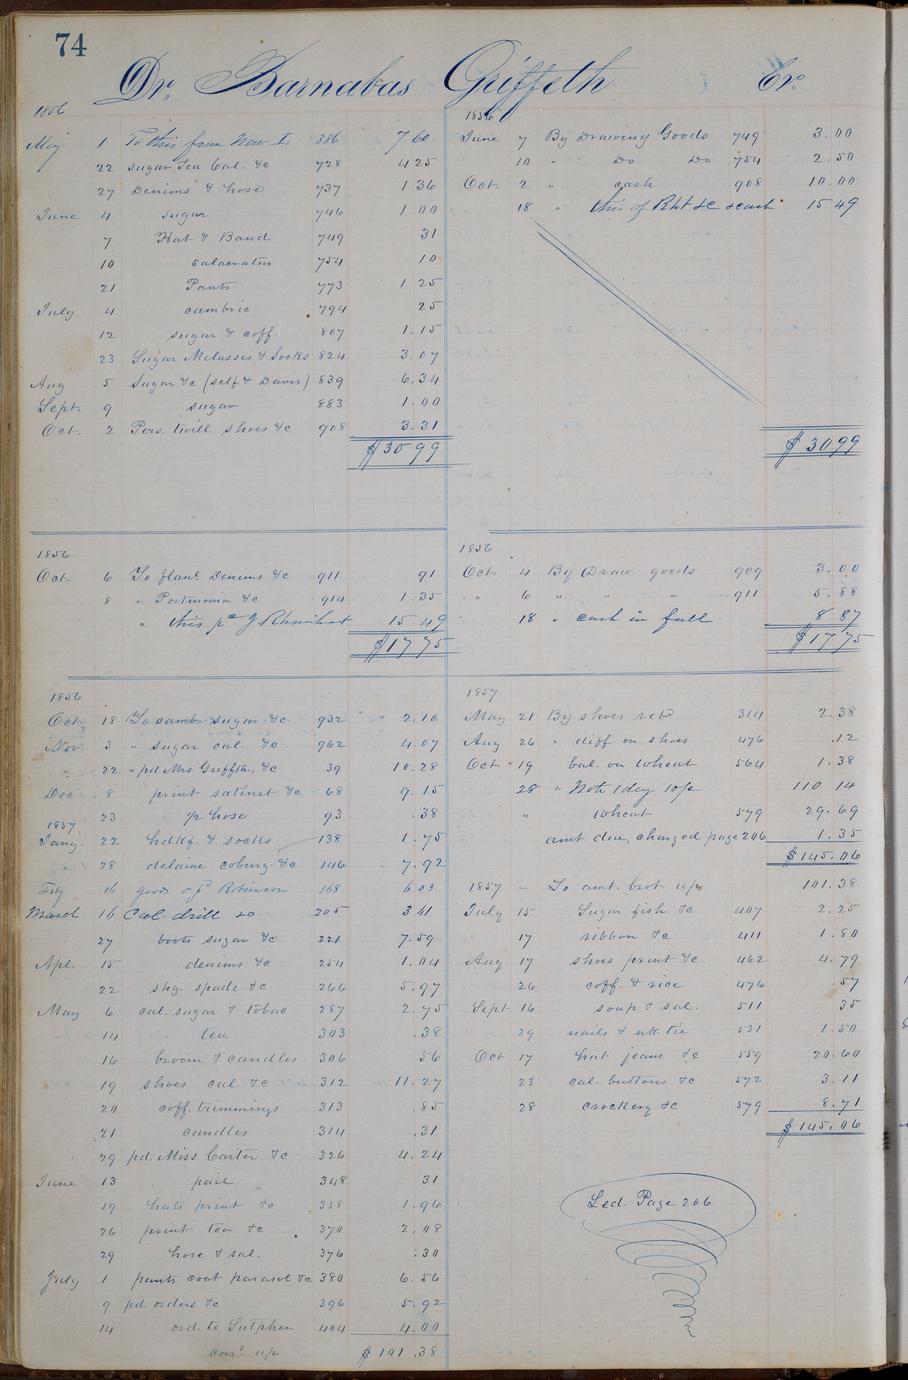 74
Dr. Barnabas Griffeth Cr.
1856
May 1 To this from New L 386 7 60
22 sugar Tea Cal. &c 728 4 25
27 Denims & hose 737 1 36
June 4 sugar 746 1 00
7 Hat & Band 749 31
10 salaeratus 754 10
21 Pants 773 1 25
July 4 cambric 794 25
12 sugar & coff. 807 1.15
23 Sugar Molasses & Socks 824 3.07
Aug 5 Sugar &c (self & Davis) 839 6.34
Sept. 9 sugar 883 1.00
Oct. 2 Pers. twill shoes &c 908 3.31
$30 99
1856
June 7 By Drawing Goods 749 3.00
10 " Do Do 754 2.50
Oct. 2 " cash 908 10.00
18 " this of Rht &c & cash 15 49
$30 99
1856
Oct. 6 To flanl. Denims &c 911 91
8 " Portmonia &c 914 1.35
" this pr J Rhinehart 15 49
$17 75
1856
Oct 4 By Draw. goods 909 3.00
" 6 " " " 911 5.88
18 " cash in full 8 87
$17 75
1856
Oct. 18 To cambc sugar &c 932 2.10
Nov. 3 " sugar cal. &c 962 4.07
" 22 " pd Mrs Griffth, &c 39 10.28
Dec 8 print satinet &c 68 9.15
23 pr hose 93 .38
1857
Jany. 22 hdkf. & socks 138 1.75
28 delaine coburg &c 146 7.92
Feby 16 goods Robinson 168 6 03
March 16 Cal. drill 205 3 41
27 boots sugar &c 221 7.59
Apl. 15 denims &c 254 1.04
22 shg. spade &c 266 5.97
May 6 cal. sugar & tobac 287 2.75
14 tea 303 .38
16 broom & candles 306 56
19 shoes cal. &c 312 11.27
20 coff. trimmings 313 .85
21 candles 314 .31
29 pd. Miss Carter &c 326 4.24
June 13 pail 348 31
19 hats print &c 358 1.96
26 print tea &c 370 2.08
29 hose & sal. 376 .30
July 1 pants coat parasol &c 380 6.56
9 pd. orders &c 396 5.92
14 ord. to Sutphen 404 4.00
card up $101.38
1857
May 21 By shoes retd 314 2.38
Aug 26 " diff on shoes 476 .12
Oct 19 bal. on wheat 564 1.38
28 " Note 1 day 10 pc 110 14
" wheat 579 29.69
amt due, charged page 206 1.35
$145.06
1857 - To amt. brot. up 101.38
July 15 Sugar fish &c 407 2.25
17 ribbon &c 411 1.80
Aug 17 shoes print &c 462 4.79
26 coff. & rice 476 .57
Sept 16 soap & sal. 511 35
29 nails & nk. tie 531 1.50
Oct 17 hat jeans &c 559 20.60
23 cal. buttons &c 572 3.11
28 crockery &c 579 8.71
$145.06
Led. Page 206